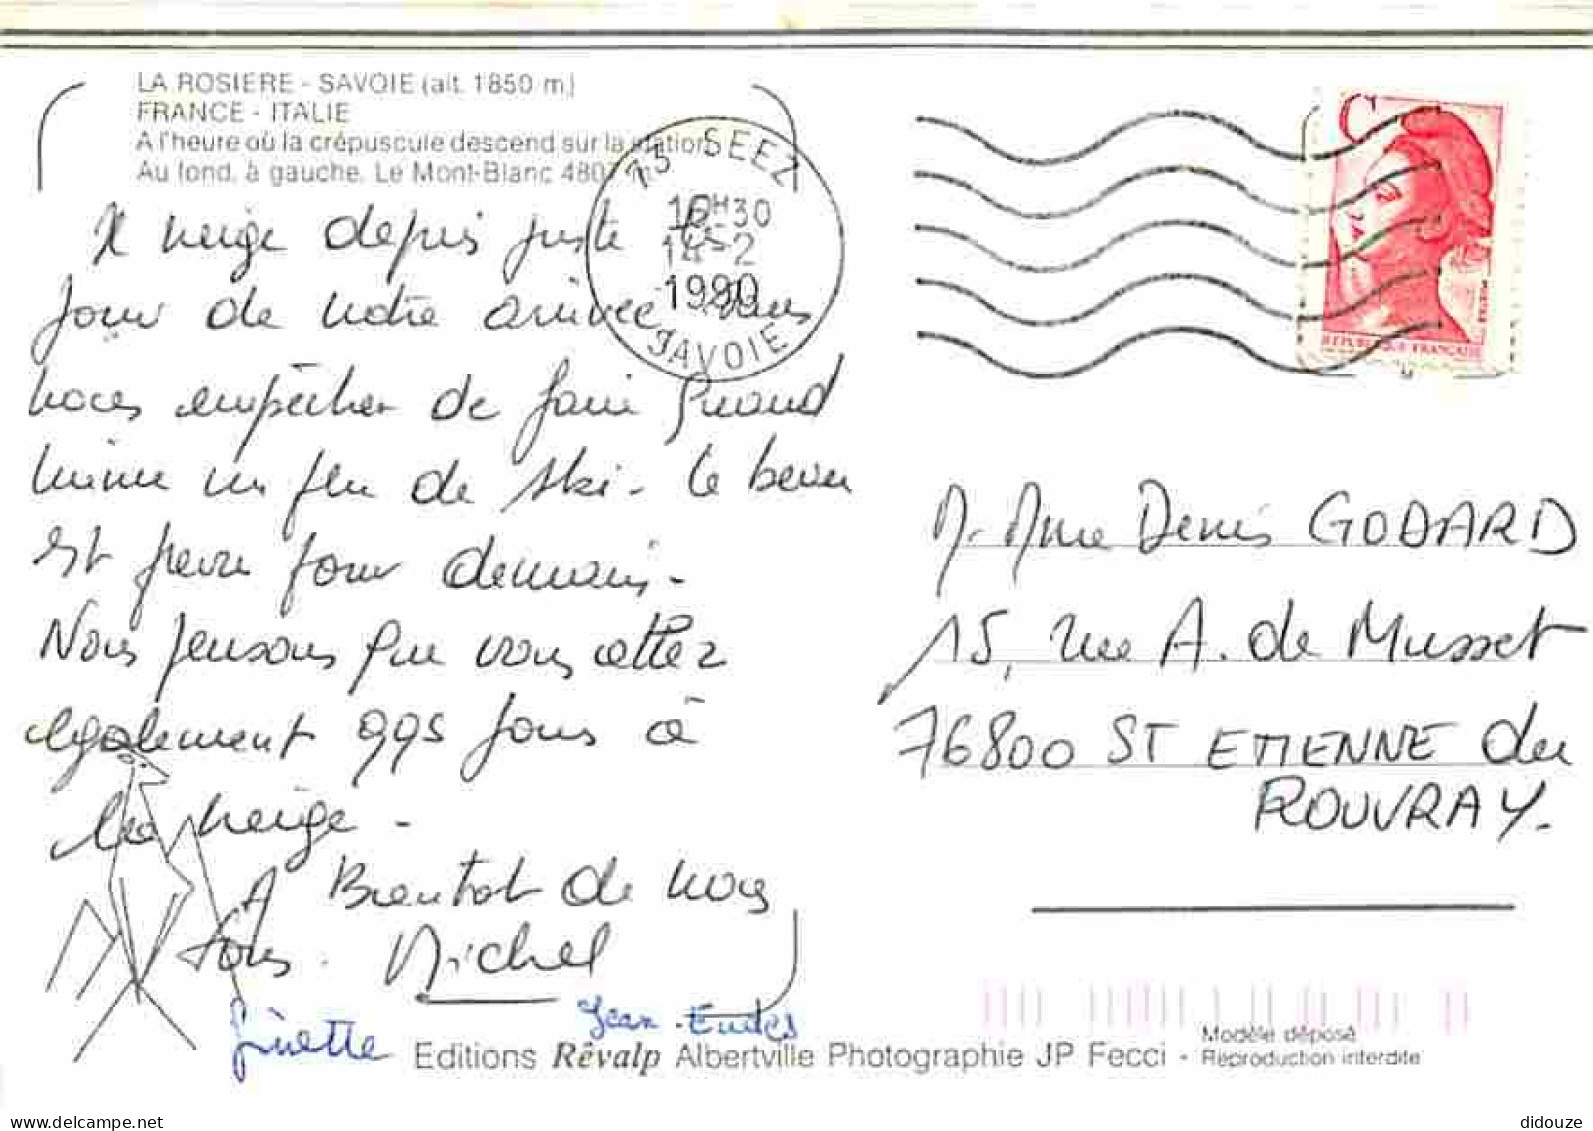 LA ROSIERE - SAVOIE (alt. 1850 m.)
FRANCE - ITALIE
A l'heure où la crépuscule descend sur la station
Au fond, à gauche, Le Mont-Blanc 4807 m
Il neige depuis juste
jour de notre arrivée sans
nous empêcher de faire quand
même un peu de ski - le beau
est prévu pour demain -
Nous pensons que vous allez
également qqs jours à
la neige -
A Bientot de nous
tous. Michel
Ginette
Jean-Eudes
73 SEEZ
14-2
1990
SAVOIE
C
REPUBLIQUE FRANÇAISE
M. Mme Denis GODARD
15, rue A. de Musset
76800 ST ETIENNE du
ROUVRAY.
Editions Rêvalp Albertville Photographie JP Fecci -
Modèle déposé
Reproduction interdite
www.delcampe.net
didouze